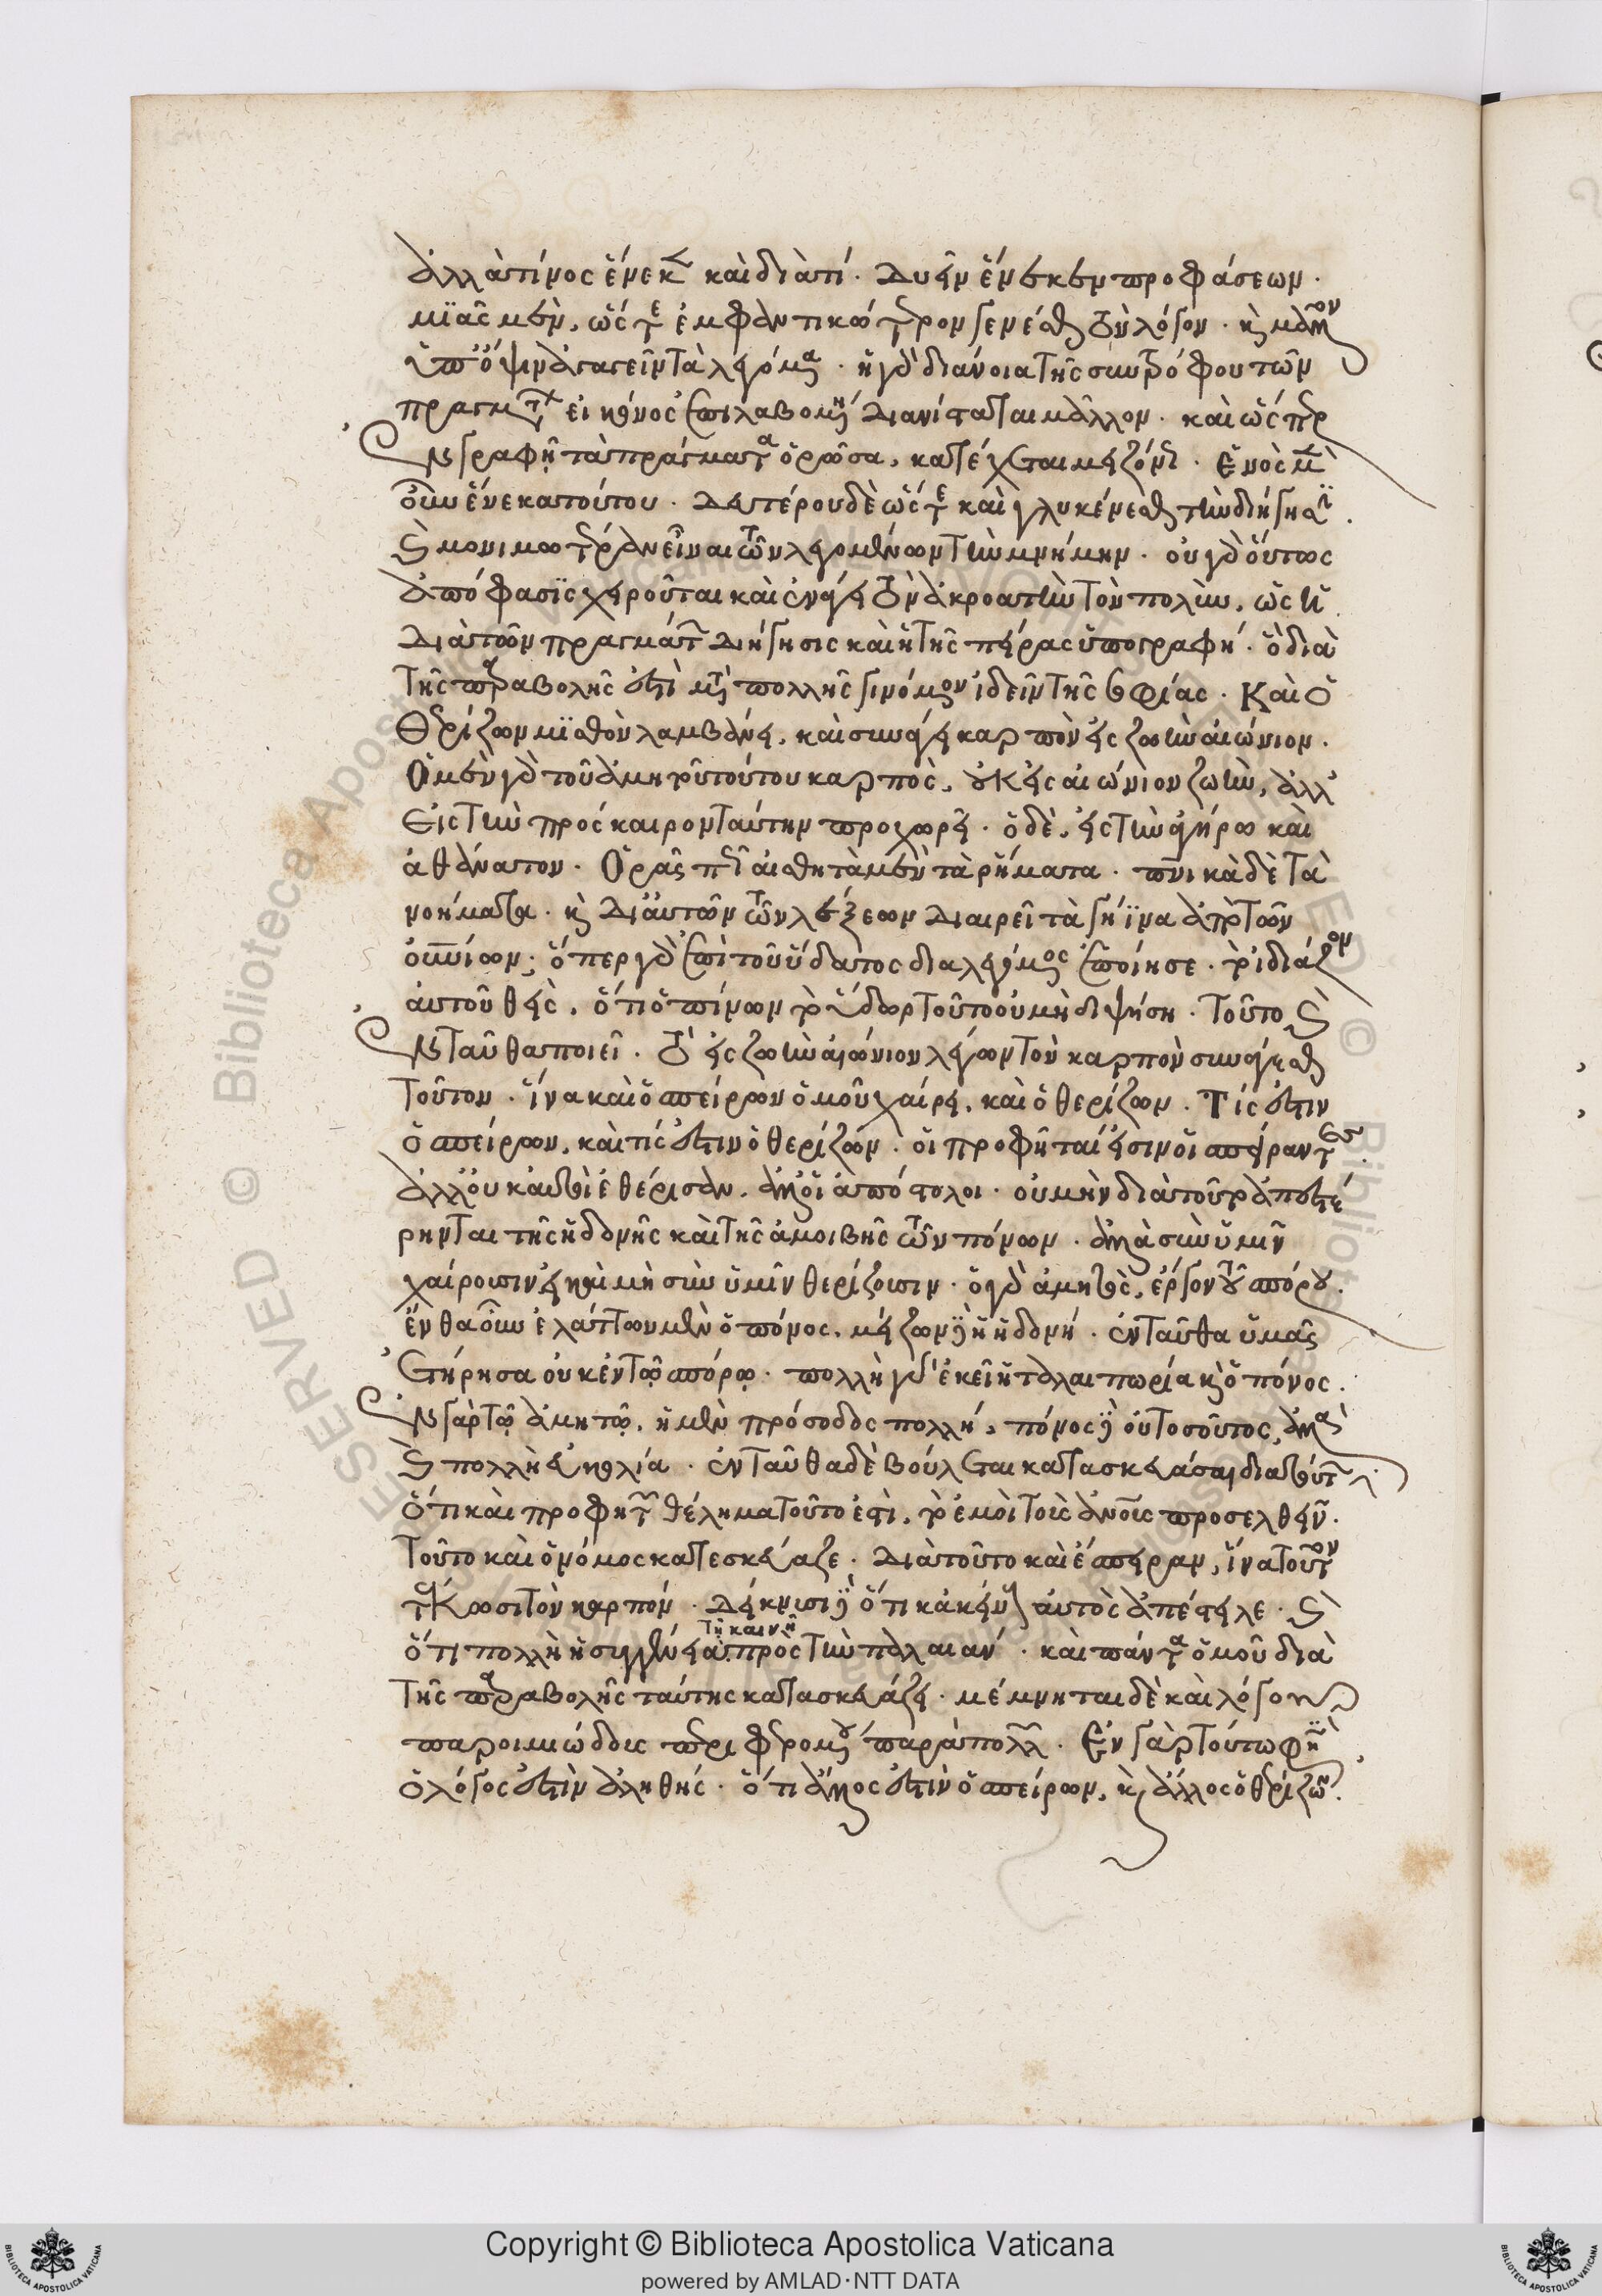 ἀλλὰ τίνος ἕνεκεν καὶ διατί· δυεῖν ἕνεκεν προφάσεων·
μϊᾶς μὲν, ὥστε ἐμφαντικώτερον γενέσθαι τὸν λόγον· καὶ μᾶλλον
ὑπόψιν ἀγαγεῖν τὰ λεγόμενα· ἡ γὰρ διάνοια τῆς συντρόφου τῶν
πραγμάτων εἰκόνος ἐπιλαβομένη διανίσταται μᾶλλον· καὶ ὥσπερ
ἐν γραφῇ τὰ πράγματα ὁρῶσα, κατέχεται μειζόνως· ἑνὸς μὲν
οὖν ἕνεκα τούτου· δευτέρου δὲ ὥστε καὶ γλυκένεσθαι τὴν διήγησιν·
καὶ μονιμωτέραν εἶναι τῶν λεγομένων τὴν μνήμην· οὐ γὰρ οὕτως
ἀπόφασϊς χειροῦται καὶ ἐνάγει τὸν ἀκροατὴν τὸν πολὺν, ὡς ἡ
διὰ τῶν πραγμάτων διήγησις καὶ ἡ τῆς πείρας ὑπογραφή· ὃ διὰ
τῆς παραβολῆς ἐστὶ μετὰ πολλῆς γινόμενον ἰδεῖν τῆς σοφίας· Καὶ ὁ
θερίζων μϊσθὸν λαμβάνει, καὶ συνάγει καρπὸν εἰς ζωὴν αἰώνιον·
Ὁ μὲν γὰρ τοῦ ἀμητοῦ τούτου καρπὸς, οὐκ εἰς αἰώνιον ζωὴν, ἀλλ'
εἰς τὴν πρόσκαιρον ταύτην προχωρεῖ· ὁ δὲ, εἰς τὴν ἀγήρω καὶ
ἀθάνατον· Ὁρᾷς πῶς αἰσθητὰ μὲν τὰ ῥήματα· πνικὰ δὲ τὰ
νοήματα· καὶ δι' αὐτῶν τῶν λέξεων διαιρεῖ τὰ γήϊνα ἀπὸ τῶν
οὐνίων· ὅπερ γὰρ ἐπὶ τοῦ ὕδατος διαλεγόμενος ἐποίησε· τὸ ἰδιάζον
αὐτοῦ θεὶς, ὅτι ὁ πίνων τὸ ὕδωρ τοῦτο οὐ μὴ διψήση· τοῦτο καὶ
ἐνταῦθα ποιεῖ· τὸ εἰς ζωὴν αἰώνιον λέγων τὸν καρπὸν συνάγεσθαι
τοῦτον· ἵνα καὶ ὁ σπείρων ὁμοῦ χαίρει, καὶ ὁ θερίζων· Τίς ἐστιν
ὁ σπείρων, καὶ τίς ἐστιν ὁ θερίζων· οἱ προφῆται εἰσιν οἱ σπείραντες·
ἀλλ' οὐκ αὐτοὶ ἐθέρισαν, ἀλλ' οἱ ἀπόστολοι· οὐ μὴν διὰ τοῦτο ἀπεστέ
ρηνται τῆς ἡδονῆς καὶ τῆς ἀμοιβῆς τῶν πόνων· ἀλλὰ σὺν ὑμῖν
χαίρουσιν εἰ καὶ μὴ σὺν ὑμῖν θερίζουσιν· ὁ γὰρ ἀμητὸς, ἔργον τοῦ σπόρου·
ἔνθα οὖν ἐλάττων μὲν ὁ πόνος, μείζων δὲ ἡ ἡδονή· ἐνταῦθα ὑμᾶς
ἐτήρησα οὐκ ἐν τῷ σπόρῳ· πολλὴ γὰρ ἐκεῖ ἡ ταλαιπωρία καὶ ὁ πόνος·
ἐν γὰρ τῷ ἀμητῷ, ἡ μὲν πρόσοδος πολλή, πόνος δὲ οὐ τοσοῦτος, ἀλλὰ
καὶ πολλὴ εὐκολία· ἐνταῦθα δὲ βούλεται κατασκευάσαι διὰ τούτων·
ὅτι καὶ προφητῶν θέλημα τοῦτο ἐστὶ, τὸ ἐμοὶ τοὺς ἀνους προσελθεῖν·
τοῦτο καὶ ὁ νόμος κατεσκεύαζε· διὰ τοῦτο καὶ ἔσπειραν, ἵνα τοῦτον
τέκωσι τὸν καρπόν· δείκνυσι δὲ ὅτι κἀκείνους αὐτὸς ἀπέστειλε· καὶ
ὅτι πολλὴ ἡ συγγένεια τῇ καινῇ πρὸς τὴν παλαιάν· καὶ πάντα ὁμοῦ διὰ
τῆς παραβολῆς ταύτης κατασκευάζει· μέμνηται δὲ καὶ λόγου
παροιμιώδους περιφερομένου παρὰ πολλῶν· Ἐν γὰρ τούτω φησὶν
ὁ λόγος ἐστὶν ἀληθής· ὅτι ἄλλος ἐστὶν ὁ σπείρων, καὶ ἄλλος ὁ θερίζων·
Copyright © Biblioteca Apostolica Vaticana
powered by AMLAD·NTT DATA